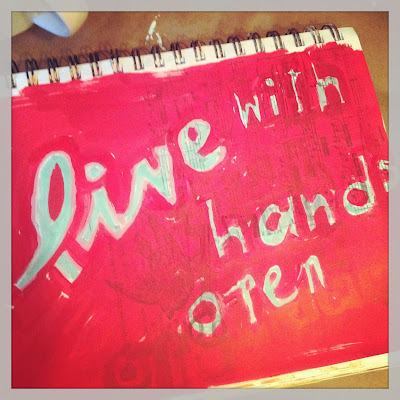 live with
hands
open